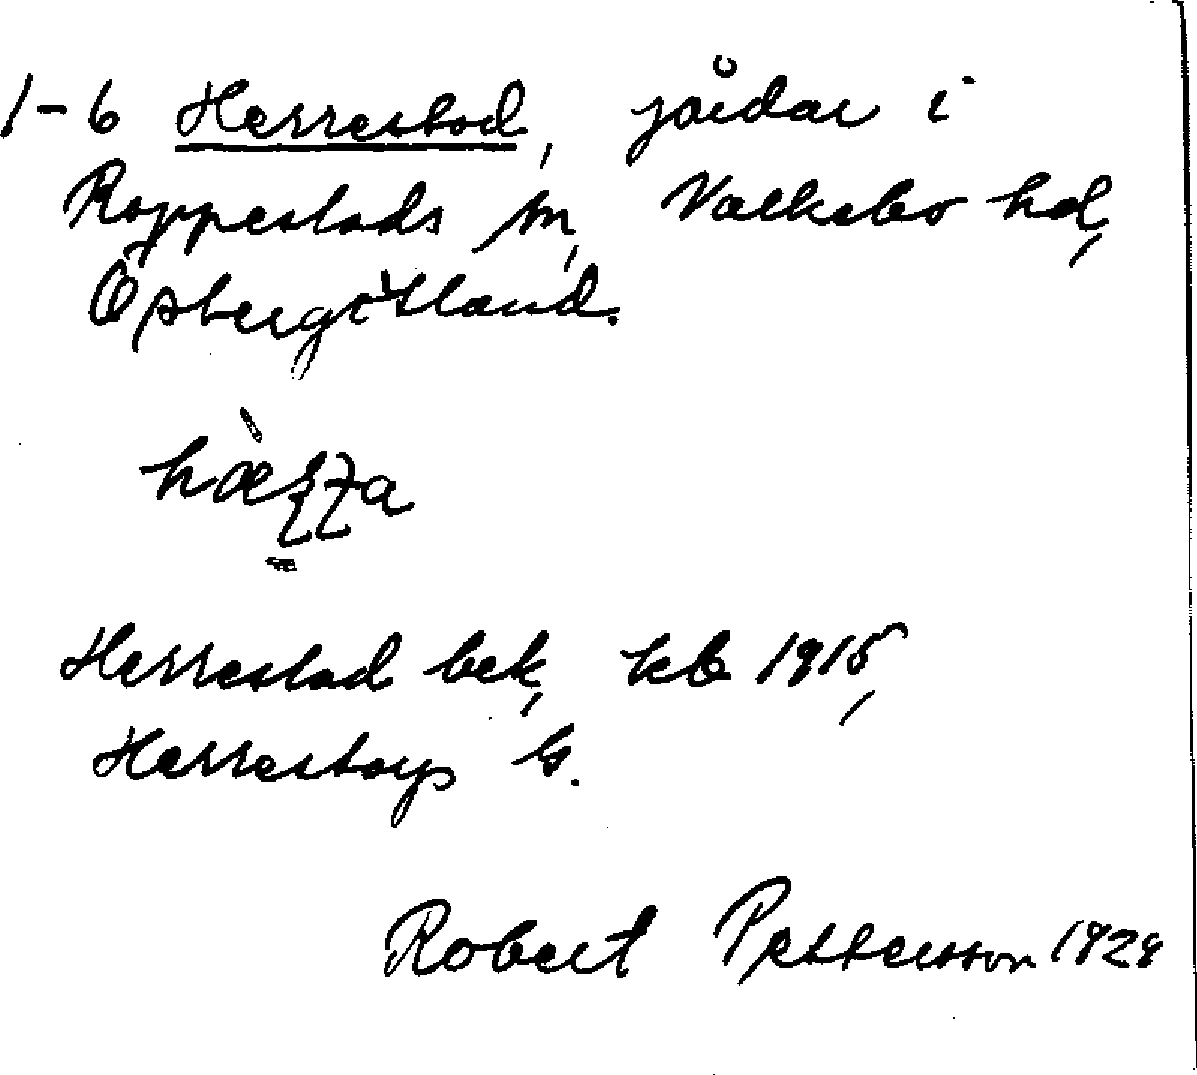 1-6 Herrestad, jordar i
Rappestads sn, Valkebo hd,
Östergötland.
Herrestad bek, kb 1915,
Robert Pettersson 1928